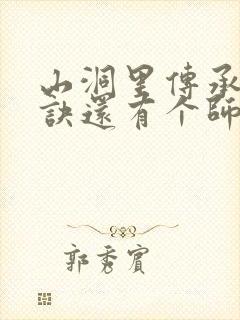 山洞里傳承
訣還有个師
郭秀賓